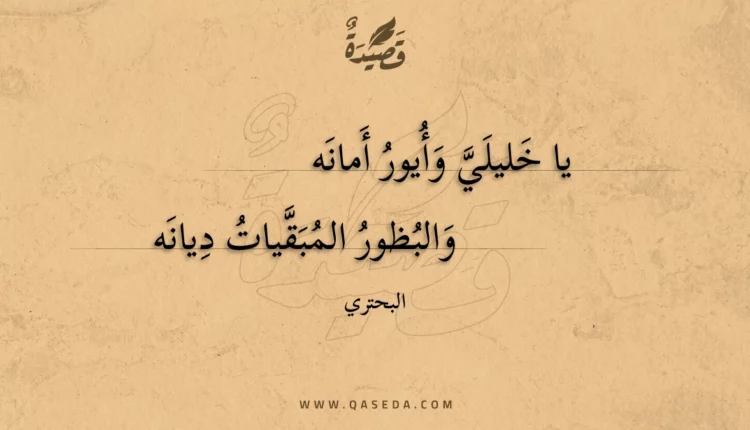 قَصِيدَةٌ
يا خَليلَيَّ وَأُيورُ أَمانَه
وَالبُظورُ المُبَقَّياتُ دِيانَه
البحتري
WWW.QASEDA.COM